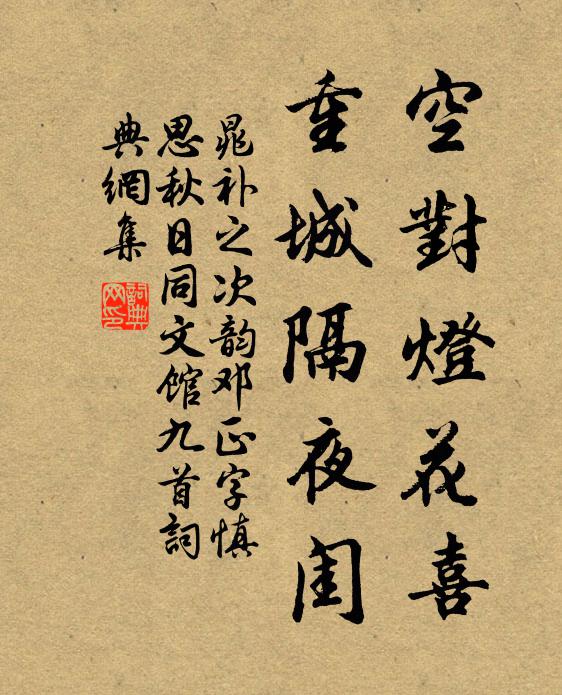 空對燈花喜
重城隔夜闺
晁补之次韵邓正字慎
思秋日同文馆九首詞
典網集
詞典网印